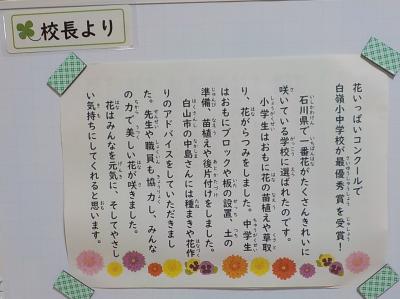 校長より
花いっぱいコンクールで
白嶺小中学校が最優秀賞を受賞！
石川県で一番花がたくさんきれいに
咲いている学校に選ばれたのです。
小学生はおもに花の苗植えや草取
り、花がらつみをしました。中学生
はおもにブロックや板の設置、土の
準備、苗植えや後片付けをしました。
白山市の中島さんには種まきや花作
りのアドバイスをしていただきまし
た。先生や職員も協力し、みんな
の力で、美しい花が咲きました。
花はみんなを元気に、そしてやさし
い気持ちにしてくれると思います。